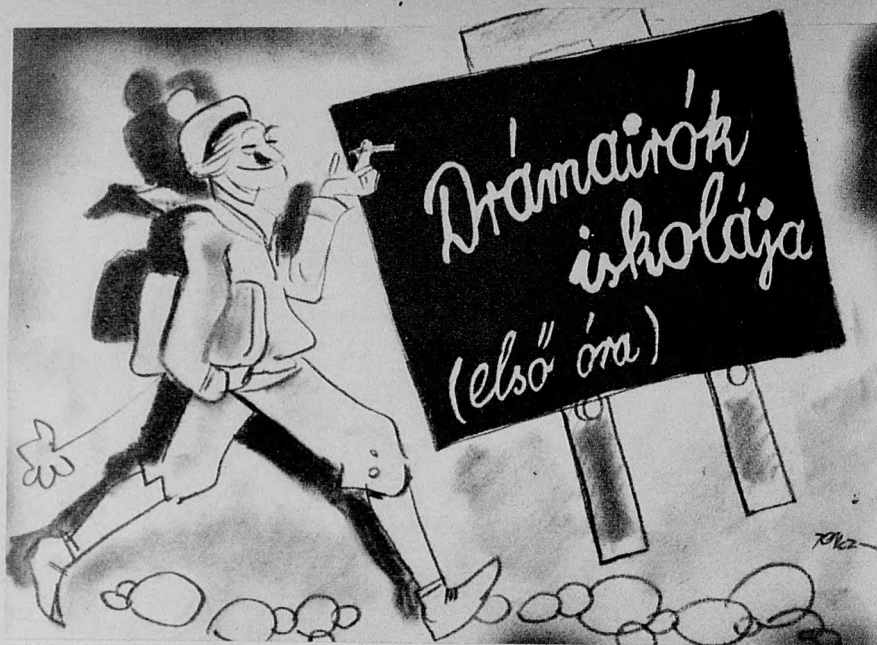 Drámaírók
iskolája
(első óra)